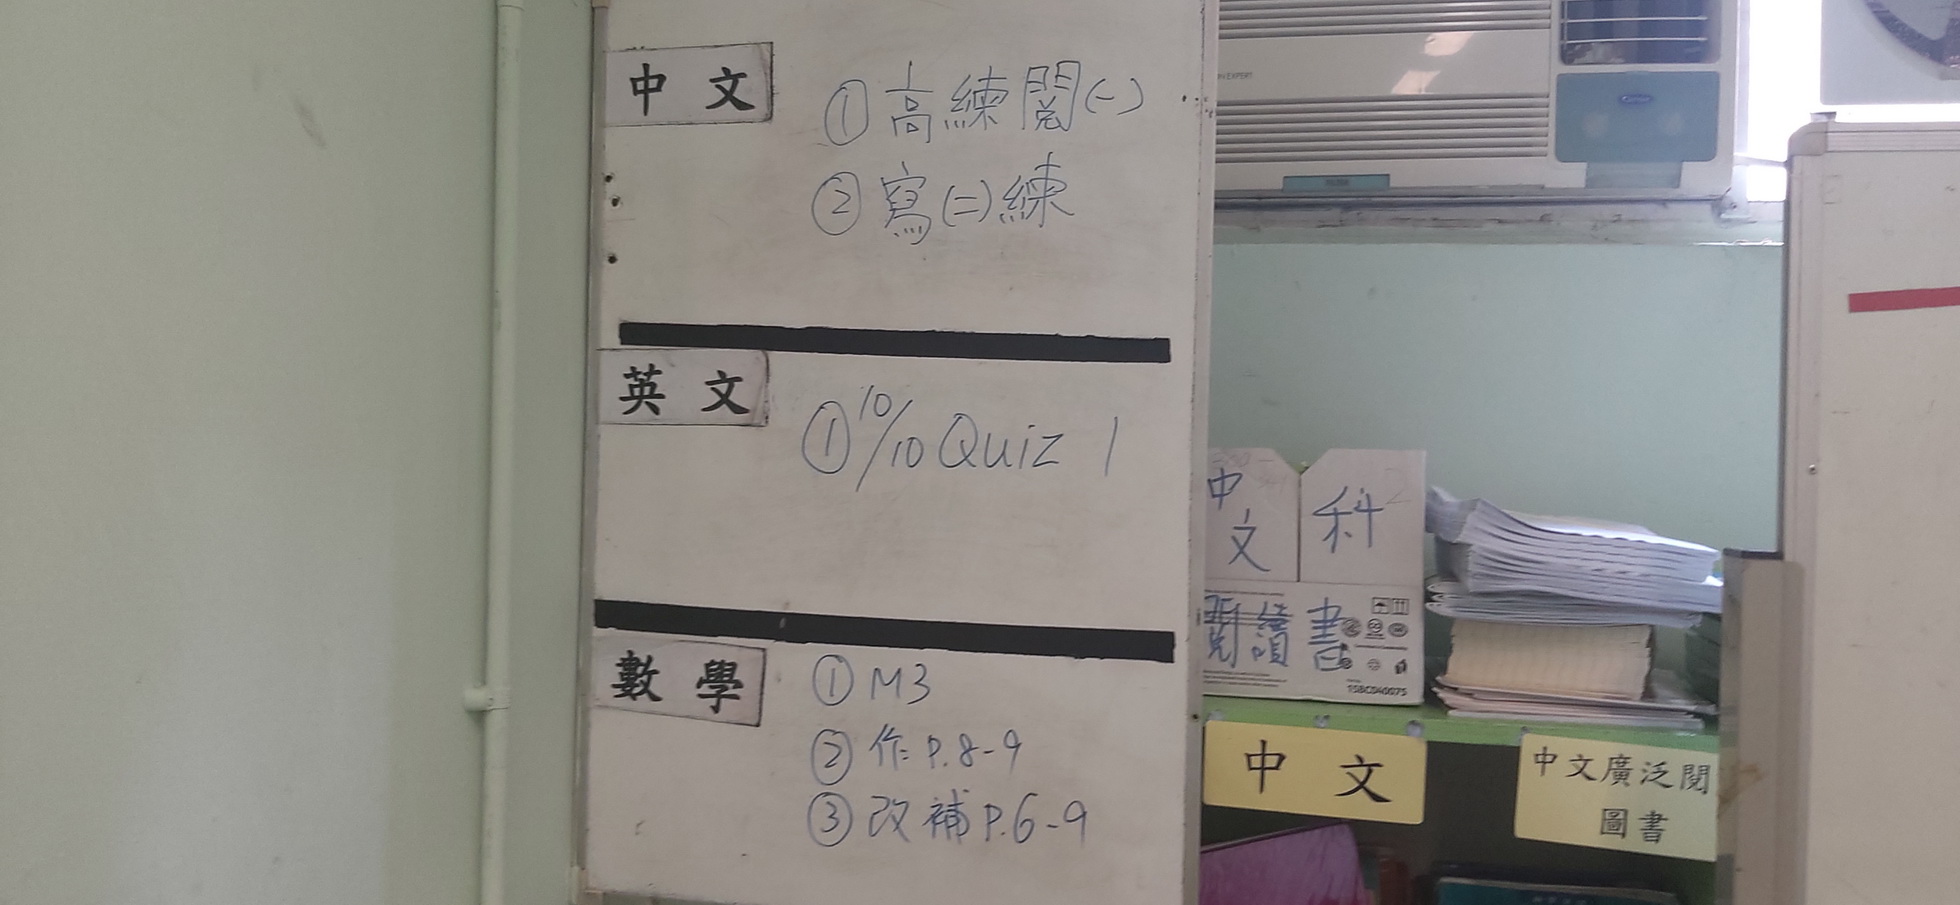 中文
①高練閱(一)
②寫(二)練
英文
①10/10 Quiz 1
數學
①M3
②作P.8-9
③改補P.6-9
EXPERT
Carrier
中文
科
閱讀書
158C040075
中文
中文廣泛閱
圖書